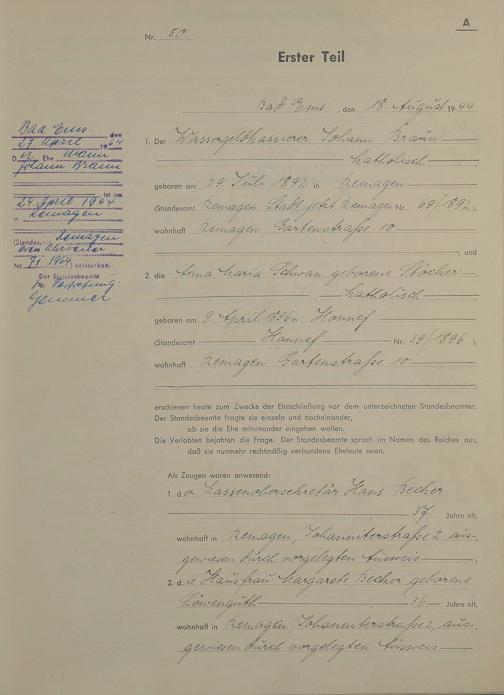 A
Nr. 50
Erster Teil
Bad Ems, den 18 August 1944
1. Der Wassergeldkassierer Johann Braun
katholisch
geboren am 29. Juli 1892 in Remagen
(Standesamt Remagen-Stadt jetzt Remagen Nr. 69/1892),
wohnhaft Remagen, Gartenstraße 10
; und
2. die Anna Maria Schwan geborene Stöcher
katholisch
geboren am 9. April 1896 in Honnef
(Standesamt Honnef Nr. 39/1896),
wohnhaft Remagen, Gartenstraße 10
erschienen heute zum Zwecke der Eheschließung vor dem unterzeichneten Standesbeamten.
Der Standesbeamte fragte sie einzeln und nacheinander,
ob sie die Ehe miteinander eingehen wollen.
Die Verlobten bejahten die Frage. Der Standesbeamte sprach im Namen des Reiches aus,
daß sie nunmehr rechtmäßig verbundene Eheleute seien.
Als Zeugen waren anwesend:
1. der Kassenobersekretär Hans Becher
37 Jahre alt,
wohnhaft in Remagen, Johanniterstraße 2, aus-
gewiesen durch vorgelegten Ausweis ;
2. die Hausfrau Margarete Becher geborene
Löwenguth 36 Jahre alt,
wohnhaft in Remagen, Johanniterstraße 2, aus-
gewiesen durch vorgelegten Ausweis
Bad Ems den
27. April 1964
Der Ehemann
Johann Braun
ist am
24. April 1964
in Remagen
(Standesamt Remagen
Kreis Ahrweiler
Nr. 71/1964) verstorben.
Der Standesbeamte
In Vertretung: